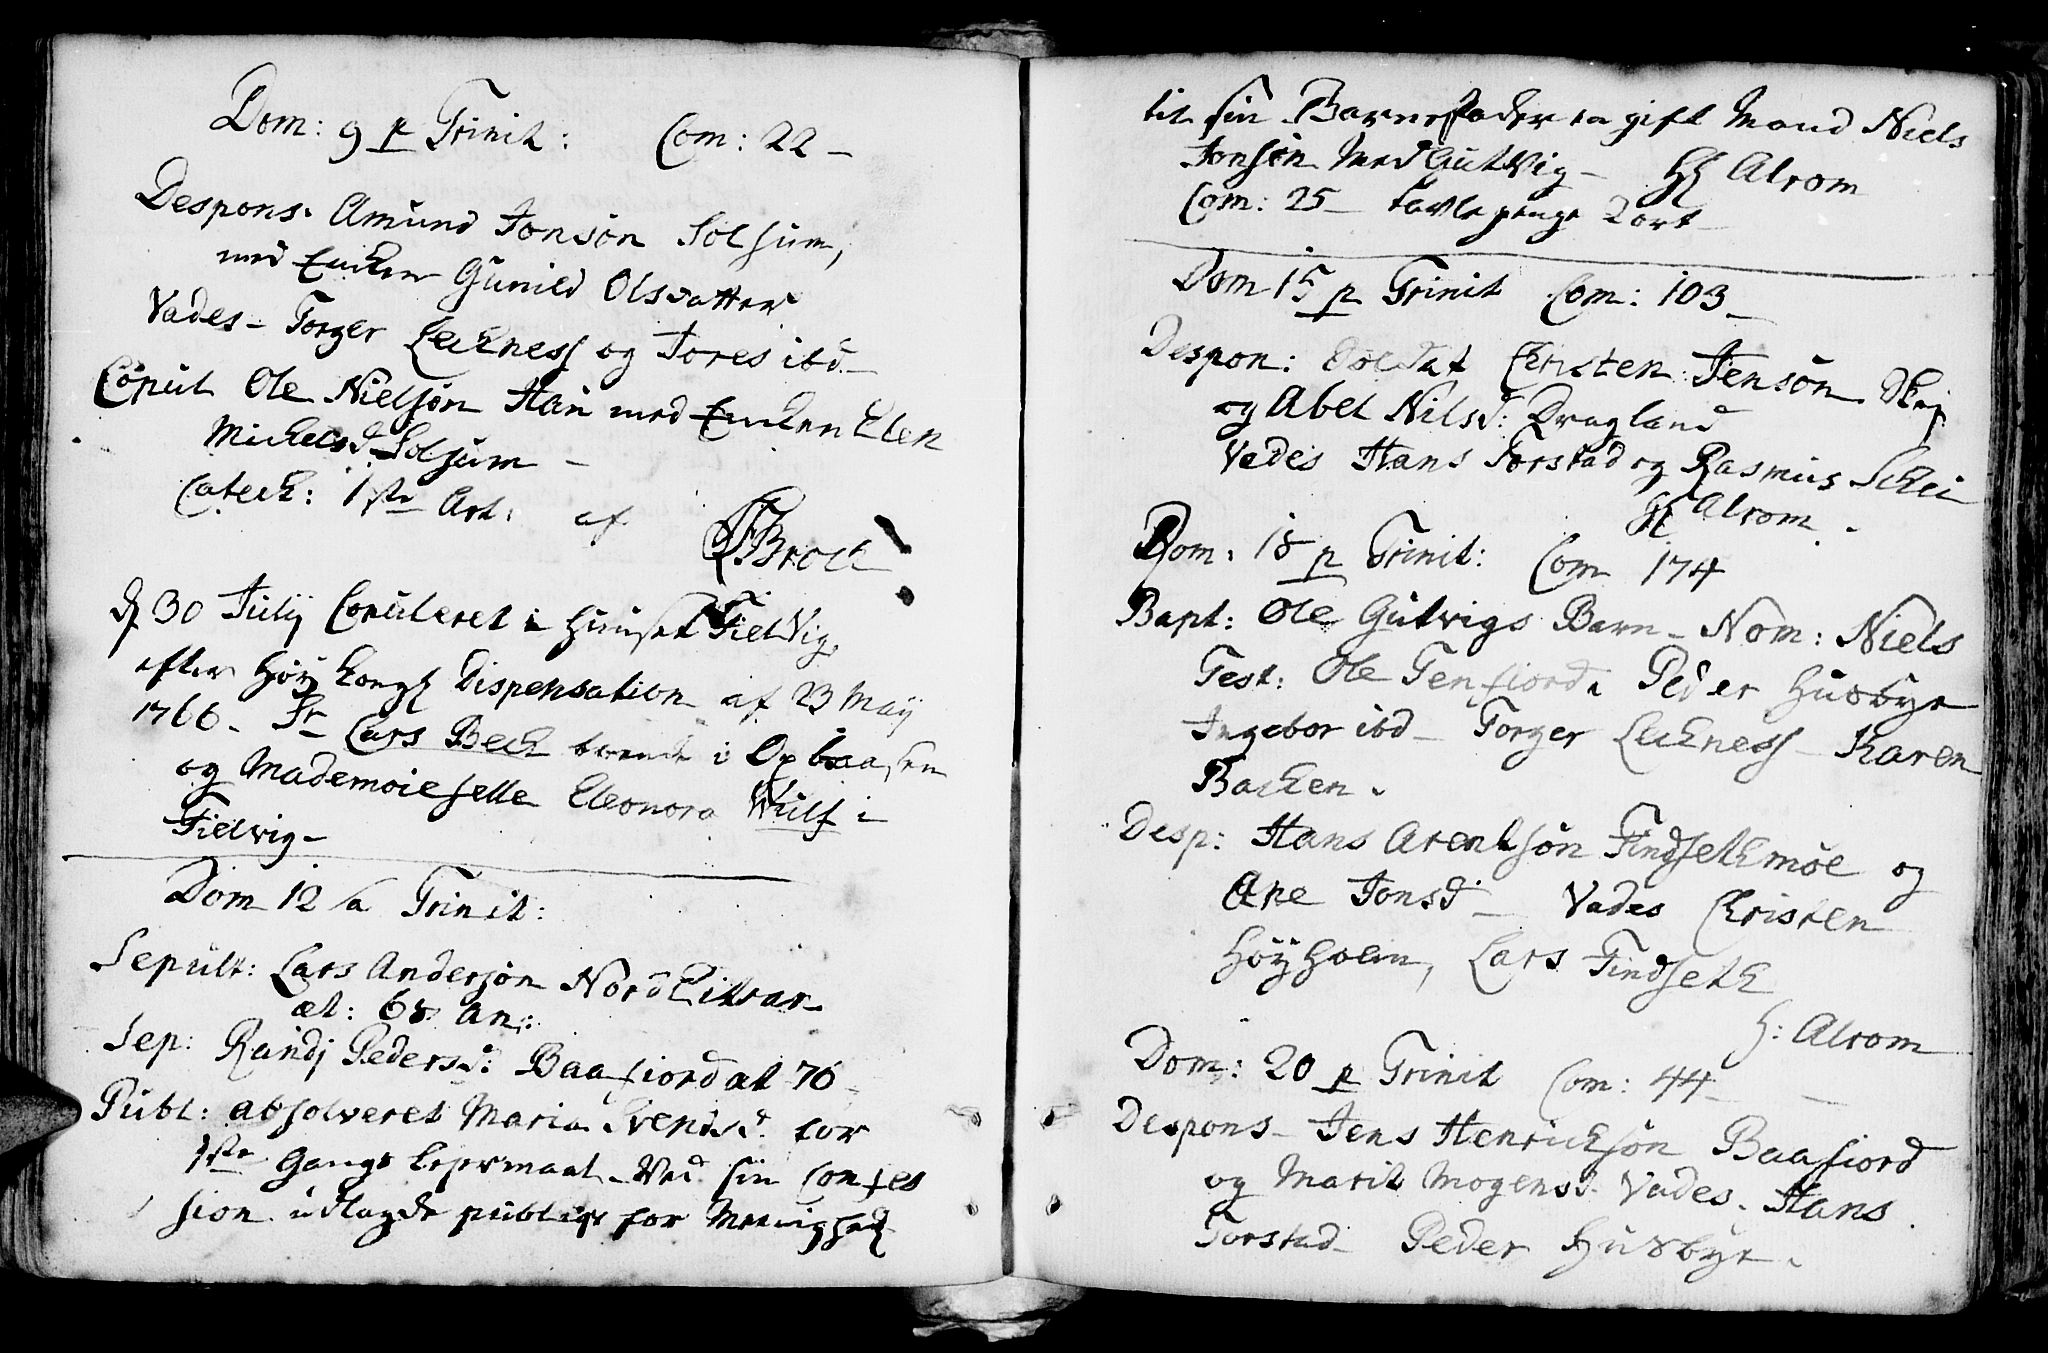 Dom: 9 p Trinit: Com: 22 -
Despons. Amund Jonsøn Solsum,
med Enken Gunild Olsdatter
Vades - Torger Leckness og Tores ibd -
Copul Ole Nielsøn Han med Enken Elen
Michelsd Solsum -
Catech: 1ste Art: af
Brock
d 30 July Copuleret i Huuset Tielvig,
efter høy kongl Dispensation af 23 Maij
1766 - Sr Lars Beck boende i Opbaasen
og Mademoiselle Eleonora Wulf i
Tielvig -
Dom 12 a Trinit:
Sepult: Lars Andersøn Nordhitrar -
æt: 68 an:
Sep: Randj Pedersd: Baafiord æt 76 -
Publ: absolveret Maria Svendsd. for
1ste Gangs lejermaal - Ved sin Confes
sion udlagde publiqe for Menighed
til sin Barnefader en gift Mand Niels
Jonsøn Nedgutvig - H Alrom
Com: 25 - tavlepenge 2 ort -
Dom 15 p Trinit Com: 103 -
Despon: Soldat Christen Jensøn
og Abel Nilsd: Dragland
Vades Hans Torstad og Rasmus Schei
H Alrom.
Dom. 18 p Trinit: Com 174
Bapt: Ole Gutvigs Barn - Nom: Niels
Test: Ole Tenfiord, Peder Husbye
Ingebor ibd - Torger Leckness - Karen
Backen.
Desp: Hans Arentsøn Findsethmoe og
Ane Jonsd - Vades Christen
Høyholm, Lars Findseth
H: Alrom
Dom: 20 p Trinit Com: 44 -
Despons - Jens Henricksøn Baafiord
og Marit Mogensd. Vades. Hans
Torstad - Peder Husbye.